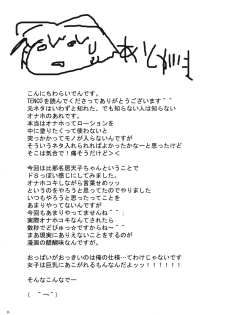 こんにちわらいでんです。
TENCOを読んでくださってありがとうございます＾＾
元ネタはいわずと知れた、でも知らない人は知らない
オナホのあれです。
本当はオナホってローション を
中に塗りたくって使わないと
突っかかってモノが入らないんですが
そういうネタ入れられればよかったかなーと思ったけど
そこは気合で！痛そうだけど＞＜
今回は比那名居天子ちゃんということで
ドＳっぽい感じにしてみました。
オナホコキしながら言葉ぜめッッ
というのをやろうと思ってたのでやりました
いつもやろうと思ったってことを
あまりやってないんですが
今回もあまりやってませんね＾＾；
実際オナホコキなんてされたら
数秒でどぴゅっ☆ですからねー＾＾
まあ現実にありえないことをするのが
漫画の醍醐味なんですが。
おっぱいがおっきいのは俺の仕様…てわけじゃないです
女子は巨乳にあこがれるもんなんだよッッ！！！！！！
そんなこんなでー
（　＾ー＾）